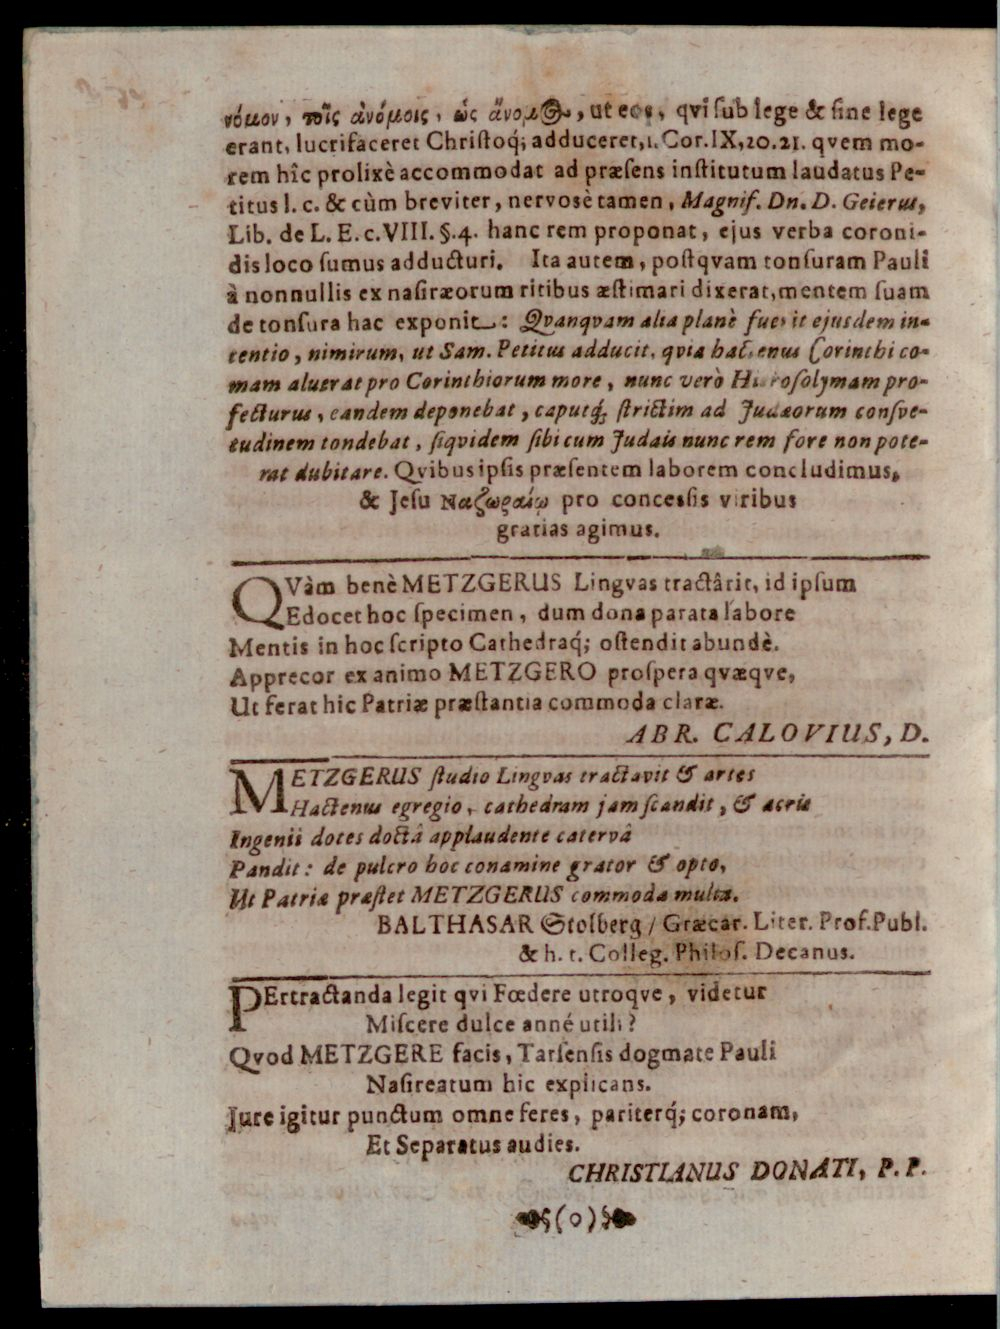 νόμον, τοῖς ἀνόμοις, ὡς ἄνομος, ut eos, qvi ſub lege & ſine lege
erant, lucrifaceret Chriſtoq́; adduceret, 1. Cor. IX, 20. 21. qvem mo-
rem hîc prolixè accommodat ad præſens inſtitutum laudatus Pe-
titus l. c. & cùm breviter, nervosè tamen, Magnif. Dn. D. Geierus,
Lib. de L. E. c. VIII. §. 4. hanc rem proponat, ejus verba coroni-
dis loco ſumus adducturi. Ita autem, poſtqvam tonſuram Pauli
à nonnullis ex naſiræorum ritibus æſtimari dixerat, mentem ſuam
de tonſura hac exponit: Qvanqvam alia planè fuerit ejusdem in-
tentio, nimirum, ut Sam. Petitus adducit, qvia hactenus Corinthi co-
mam aluerat pro Corinthiorum more, nunc verò Hieroſolymam pro-
fecturus, eandem deponebat, caputq́; ſtrictim ad Judæorum conſve-
tudinem tondebat, ſiqvidem ſibi cum Judæis nunc rem fore non pote-
rat dubitare. Qvibus ipſis præſentem laborem concludimus,
& Jeſu Ναζωραίῳ pro concesſis viribus
gratias agimus.
QVàm benè METZGERUS Lingvas tractârit, id ipſum
Edocet hoc ſpecimen, dum dona parata labore
Mentis in hoc ſcripto Cathedraq́; oſtendit abundè.
Apprecor ex animo METZGERO proſpera qvæqve,
Ut ferat hic Patriæ præſtantia commoda claræ.
ABR. CALOVIUS, D.
METZGERUS ſtudio Lingvas tractavit & artes
Hactenus egregio, cathedram jam ſcandit, & acris
Ingenii dotes doctâ applaudente catervâ
Pandit: de pulcro hoc conamine grator & opto,
Ut Patriæ præſtet METZGERUS commoda multa.
BALTHASAR Stolberg / Græcar. Liter. Prof. Publ.
& h. t. Colleg. Philoſ. Decanus.
PErtractanda legit qvi Fœdere utroqve, videtur
Miſcere dulce anné utili?
Qvod METZGERE facis, Tarſenſis dogmate Pauli
Naſireatum hic explicans.
Jure igitur punctum omne feres, pariterq́; coronam,
Et Separatus audies.
CHRISTIANUS DONATI, P. P.
(o)